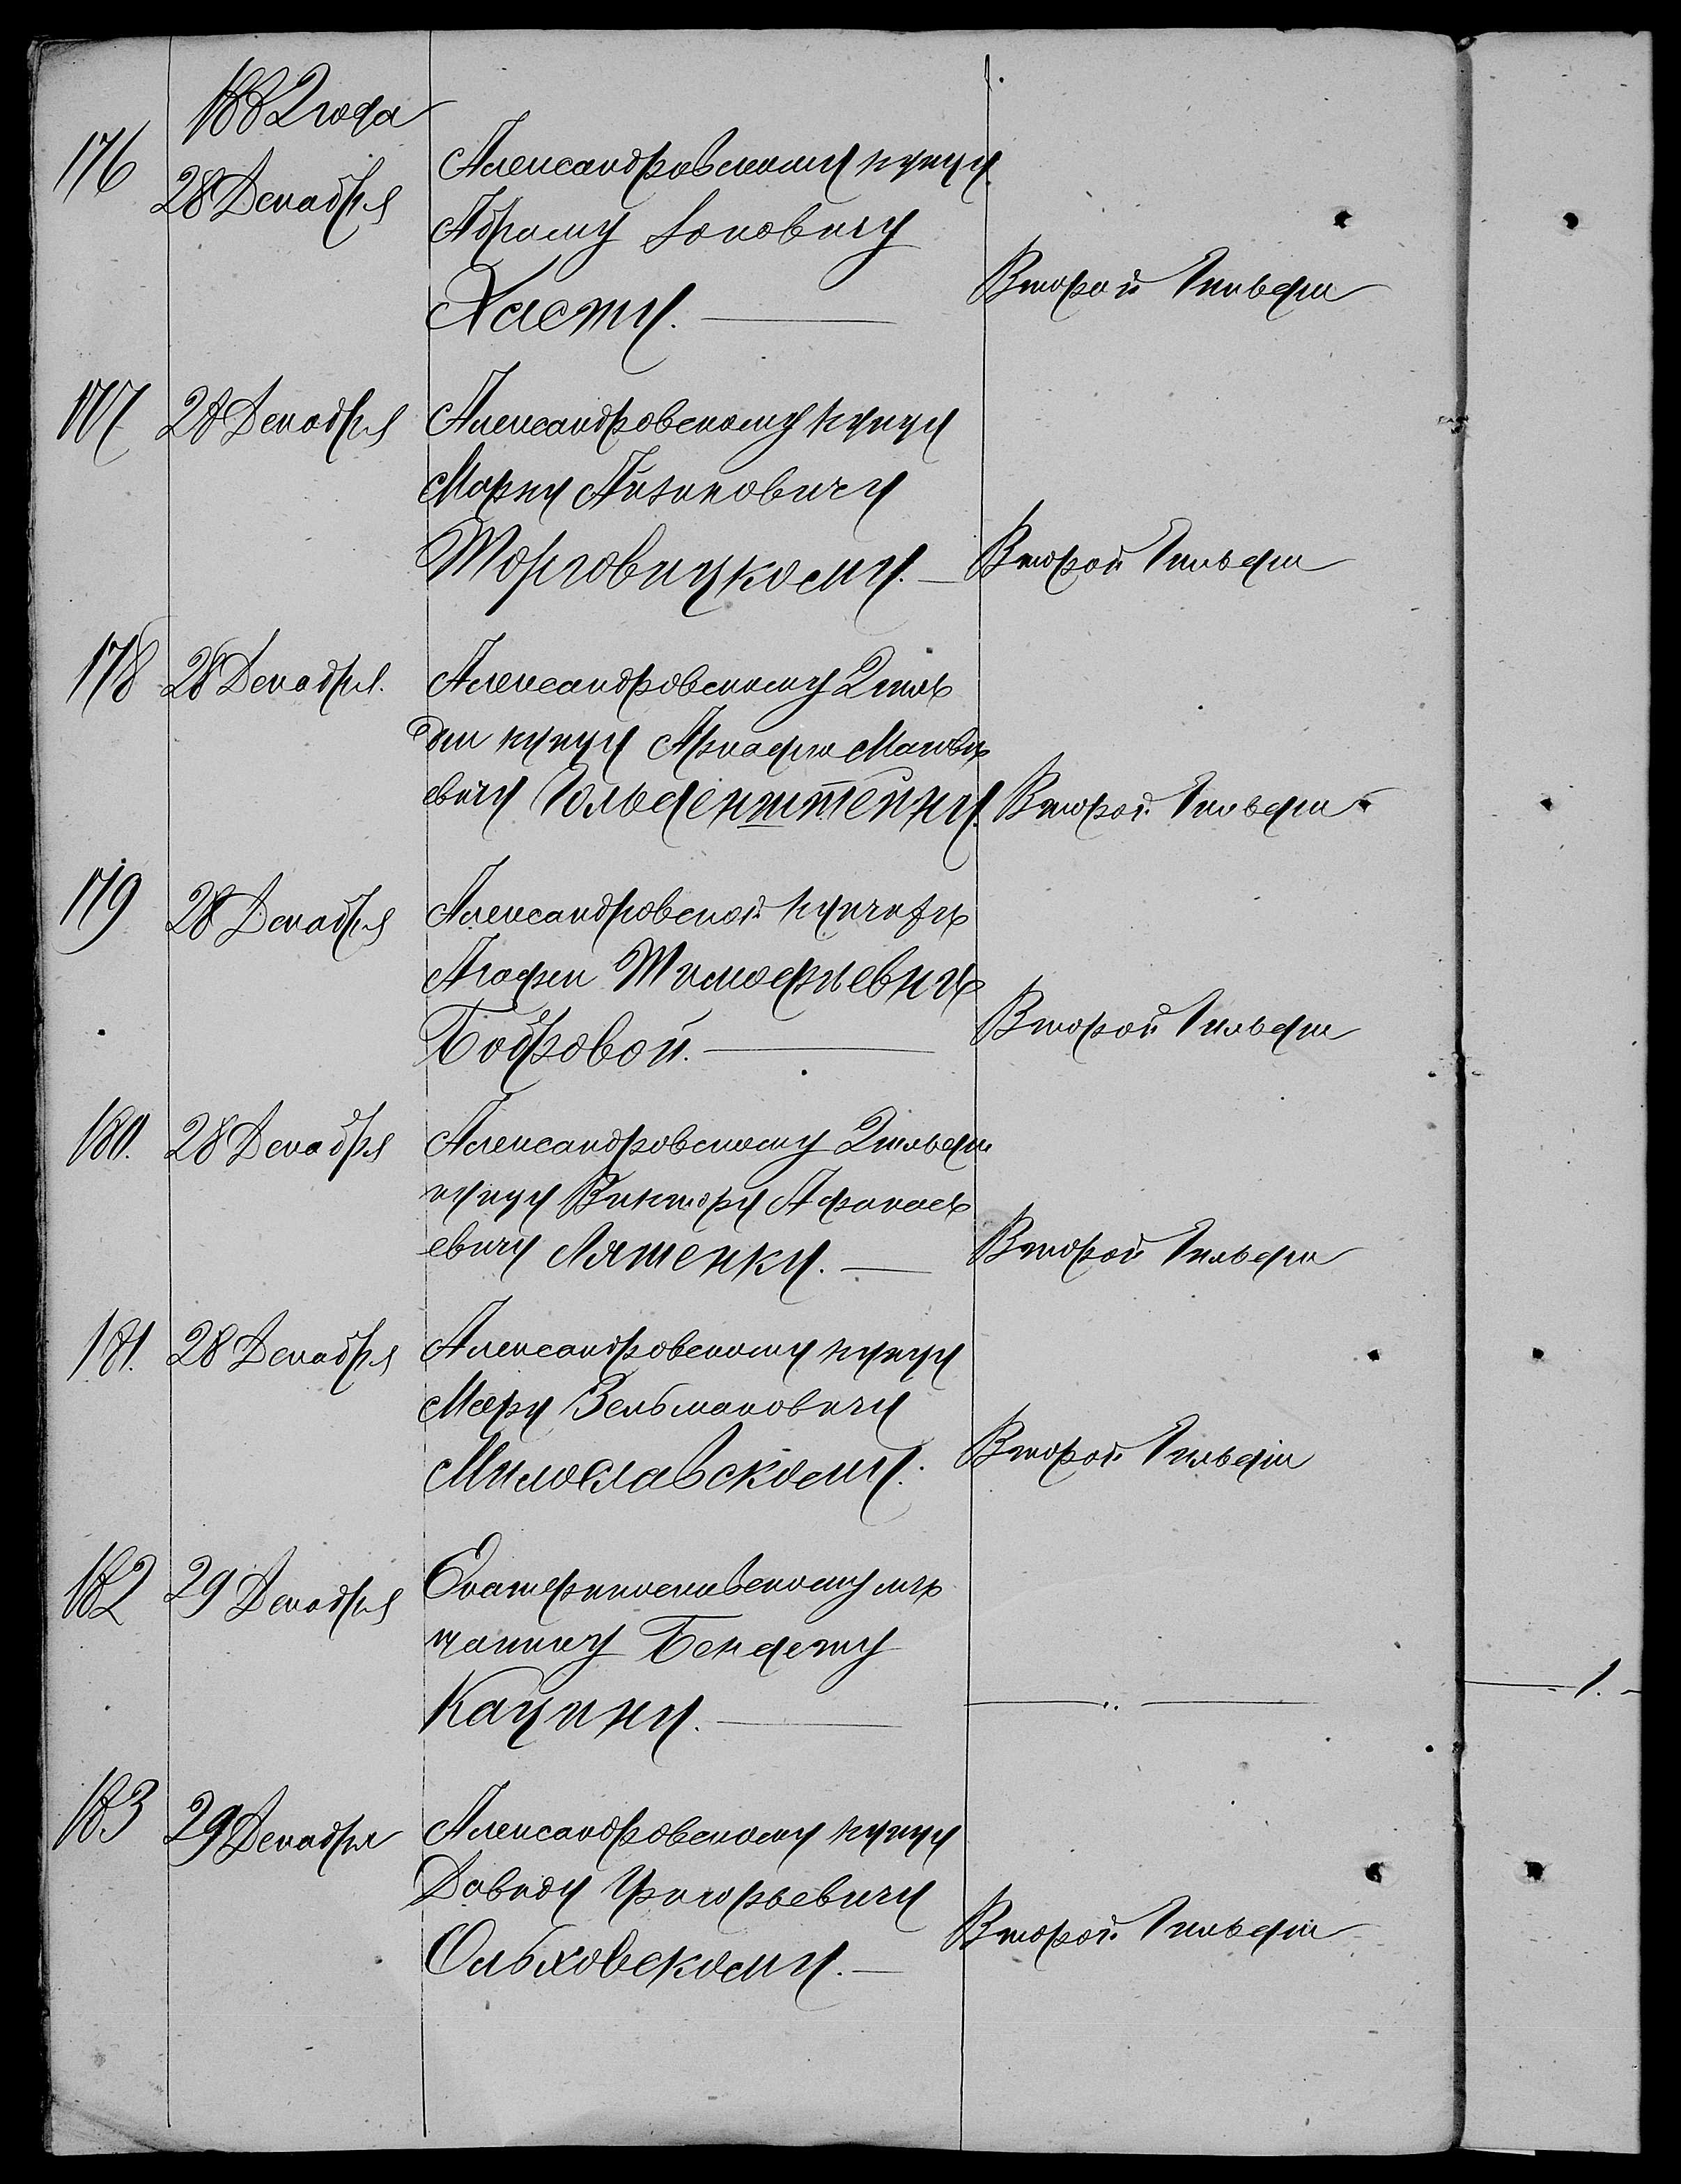 1882 года
176
28 Декабря
Александровскому купцу
Абраму Іоновичу
Хасту.
Второй Гильдіи
177 28 Декабря Александровскому купцу
Марку Айзиковичу
Торговицкому. Второй Гильдіи
178 28 Декабря. Александровскому 2 гиль
діи купцу Аркадію Матвѣ
евичу Гольденштейну. Второй Гильдіи
179 28 Декабря Александровской купчихѣ
Агафіи Тимофѣевнѣ
Бобровой. Второй Гильдіи
180. 28 Декабря Александровскому 2 гильдіи
купцу Виктору Афанась
евичу Ляшенку. Второй Гильдіи
181. 28 Декабря Александровскому купцу
Мееру Зельмановичу
Милославскому. Второй Гильдіи
182 29 Декабря Екатеринославскому мѣ
щанину Бендету
Кацину. 1.
183 29 Декабря Александровскому купцу
Давиду Григорьевичу
Ольховскому. Второй Гильдіи